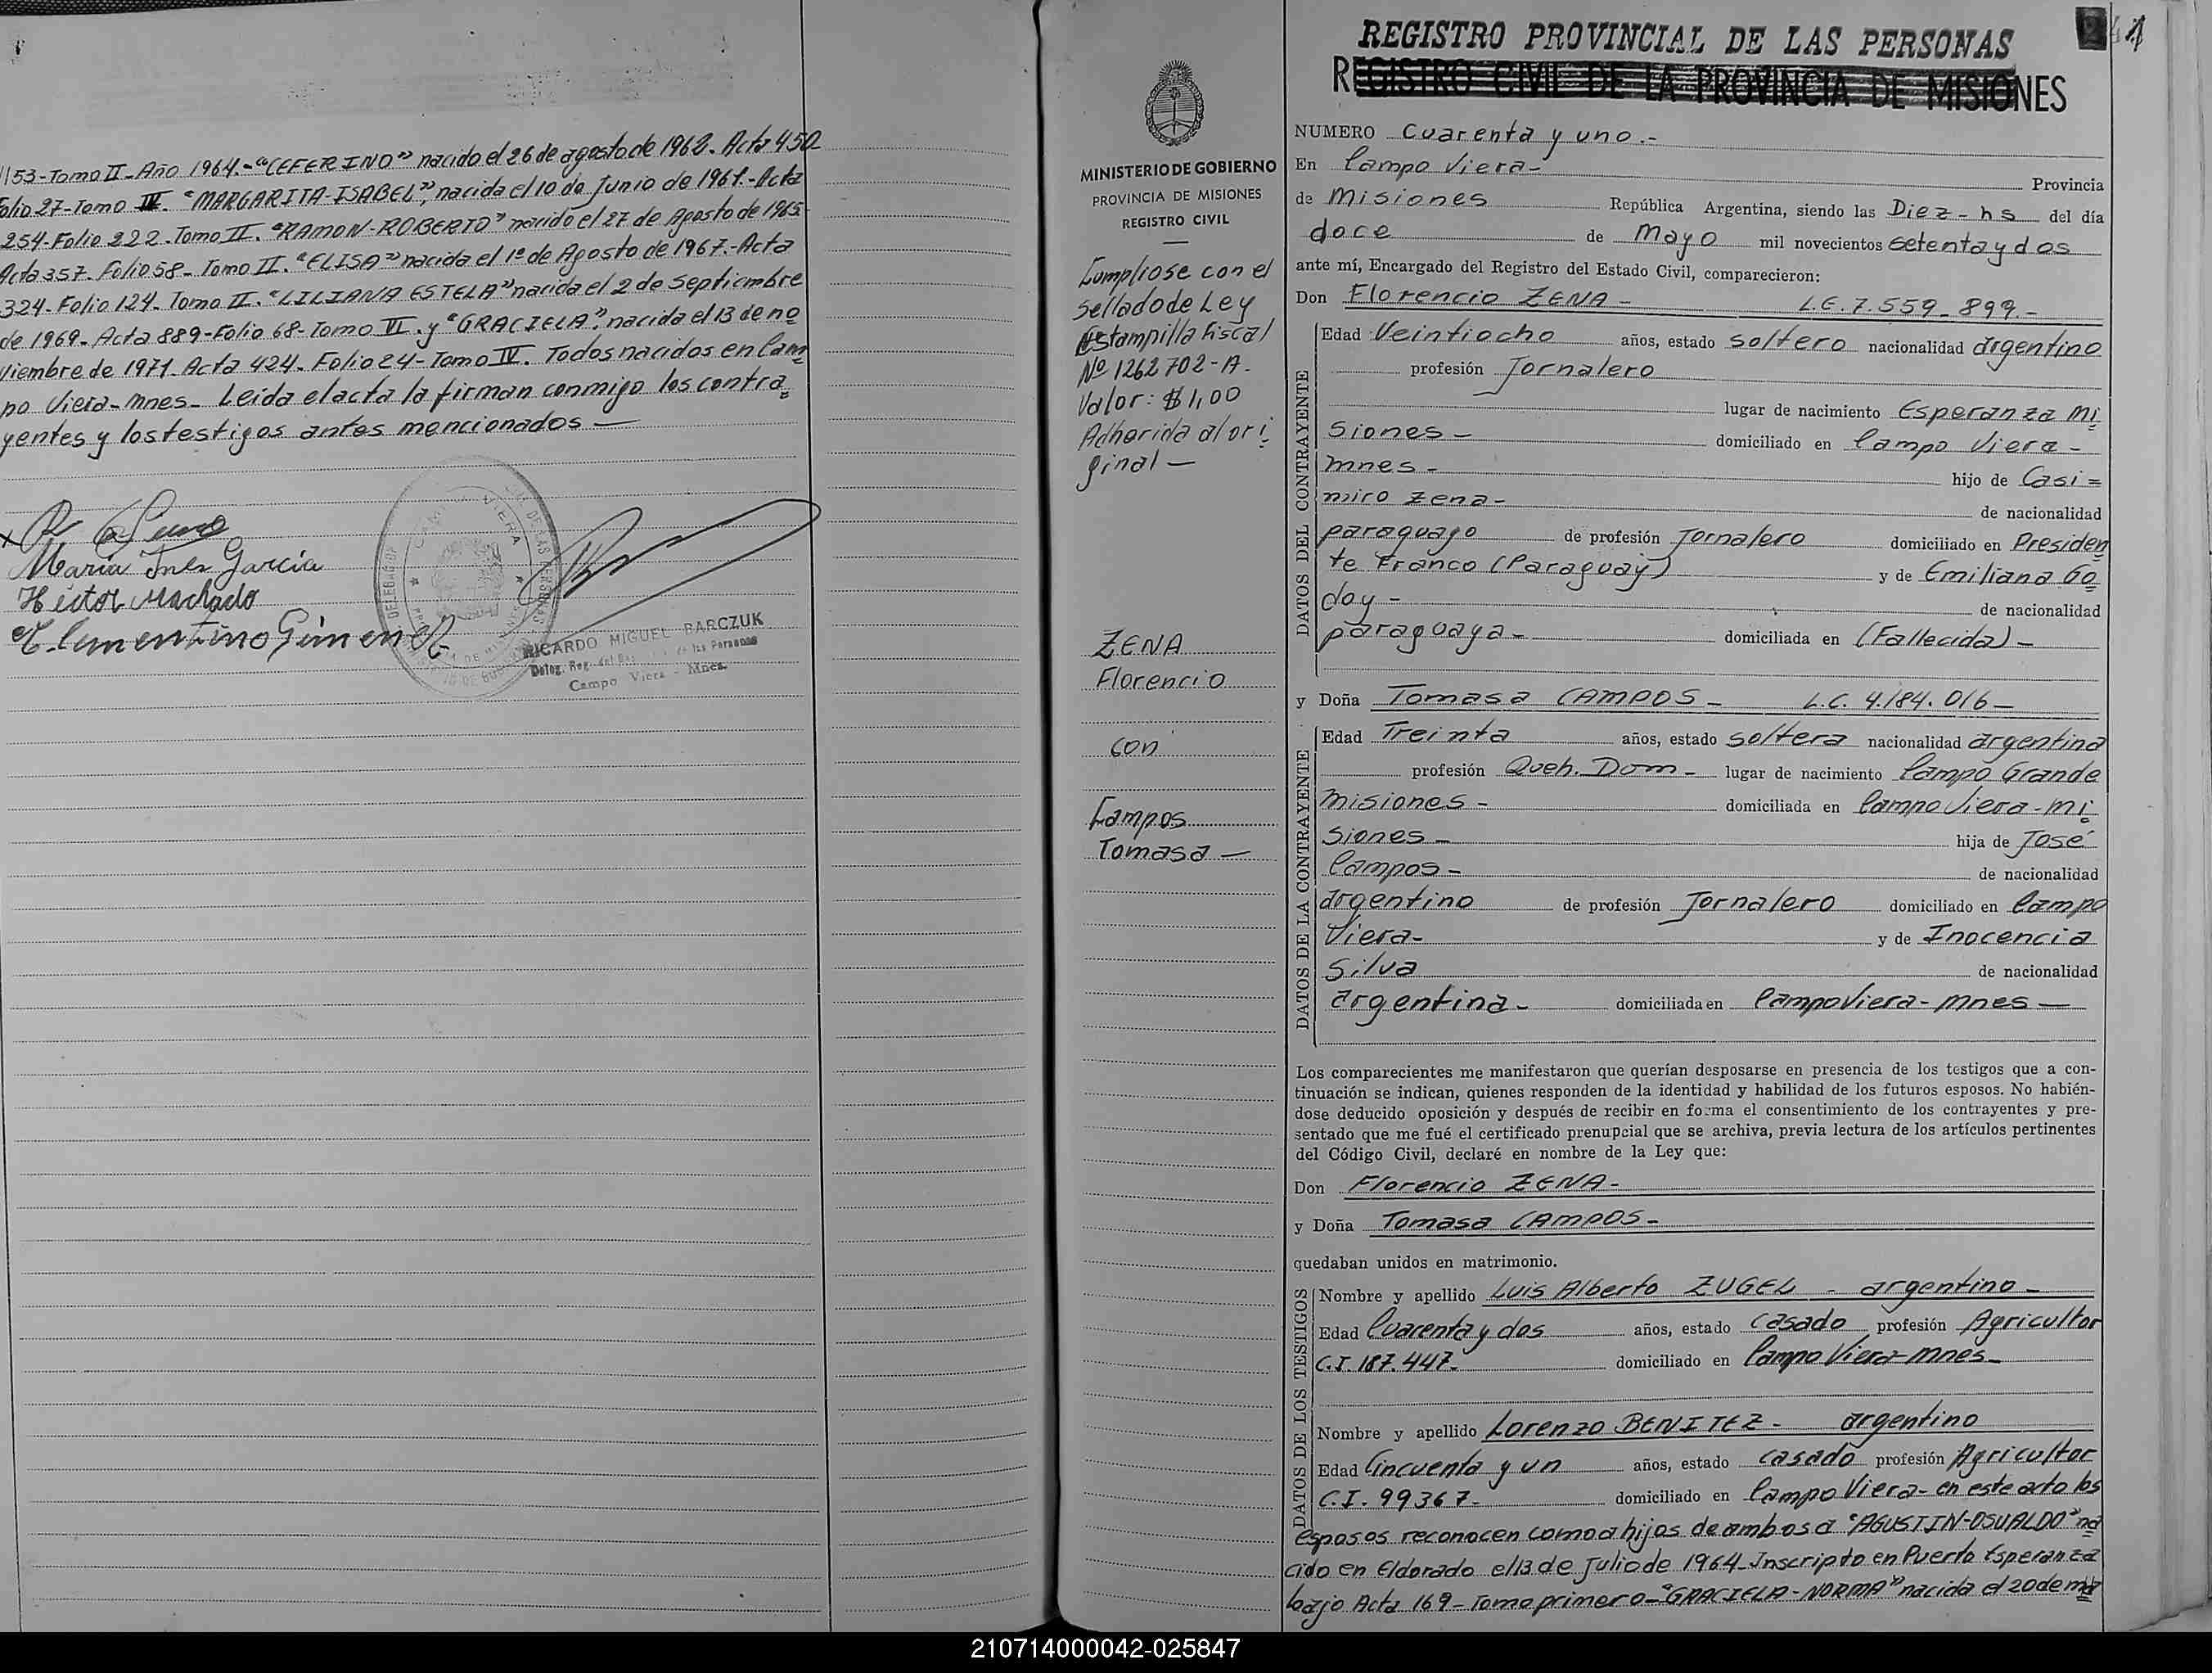 1153-Tomo II-Año 1964.-"CEFERINO" nacido el 26 de agosto de 1962. Acta 450
Folio 27-Tomo III. "MARGARITA-ISABEL", nacida el 10 de Junio de 1961.-Acta
254-Folio 222.Tomo II. "RAMON-ROBERTO" nacido el 27 de Agosto de 1965-
Acta 357. Folio 58- Tomo II. "ELISA" nacida el 1º de Agosto de 1967.-Acta
324-Folio 124-Tomo II. "LILIANA ESTELA" nacida el 2 de Septiembre
de 1969-Acta 889-Folio 68-Tomo VI. y "GRACIELA", nacida el 13 de no
viembre de 1971. Acta 424. Folio 24-Tomo IV. Todos nacidos en Cam
po Viera-Mnes- Leida el acta la firman conmigo los contra=
yentes y los testigos antes mencionados —
Maria Ines Garcia
Hector Machado
Clementino Gimenez
CAMPO VIERA
DELEGACION
RICARDO MIGUEL BARCZUK
Deleg. Reg. del de las Personas
Campo Viera - Mnes.
MINISTERIO DE GOBIERNO
PROVINCIA DE MISIONES
REGISTRO CIVIL
Cumpliose con el
Sellado de Ley
Estampilla Fiscal
Nº 1262702-A-
Valor: $ 1,00
Adherida al ori=
ginal —
ZENA
Florencio
con
Campos
Tomasa —
41
REGISTRO PROVINCIAL DE LAS PERSONAS
REGISTRO CIVIL DE LA PROVINCIA DE MISIONES
NUMERO Cuarenta y uno.-
En Campo Viera- Provincia
de Misiones República Argentina, siendo las Diez-hs del día
doce de Mayo mil novecientos setenta y dos
ante mí, Encargado del Registro del Estado Civil, comparecieron:
Don Florencio ZENA- L.E. 7.559-899.-
DATOS DEL CONTRAYENTE
Edad Veintiocho años, estado soltero nacionalidad argentino
profesión Jornalero
lugar de nacimiento Esperanza Mi
siones- domiciliado en Campo Viera-
mnes- hijo de Casi=
miro Zena- de nacionalidad
paraguayo de profesión Jornalero domiciliado en Presiden
te Franco (Paraguay) y de Emiliana Go
doy- de nacionalidad
paraguaya- domiciliada en (Fallecida)-
y Doña Tomasa CAMPOS- L.C. 4.184.016-
DATOS DE LA CONTRAYENTE
Edad Treinta años, estado soltera nacionalidad argentina
profesión Queh. Dom- lugar de nacimiento Campo Grande
Misiones- domiciliada en Campo Viera-Mi
siones- hija de José
Campos- de nacionalidad
argentino de profesión Jornalero domiciliado en Campo
Viera- y de Inocencia
Silva de nacionalidad
argentina- domiciliada en Campo Viera-mnes —
Los comparecientes me manifestaron que querían desposarse en presencia de los testigos que a con-
tinuación se indican, quienes responden de la identidad y habilidad de los futuros esposos. No habién-
dose deducido oposición y después de recibir en forma el consentimiento de los contrayentes y pre-
sentado que me fué el certificado prenupcial que se archiva, previa lectura de los artículos pertinentes
del Código Civil, declaré en nombre de la Ley que:
Don Florencio ZENA-
y Doña Tomasa CAMPOS-
quedaban unidos en matrimonio.
DATOS DE LOS TESTIGOS
Nombre y apellido Luis Alberto ZUGEL - argentino-
Edad Cuarenta y dos años, estado Casado profesión Agricultor
C.I. 187.447- domiciliado en Campo Viera-mnes-
Nombre y apellido Lorenzo BENITEZ- argentino
Edad Cincuenta y un años, estado casado profesión Agricultor
C.I. 99367- domiciliado en Campo Viera- en este acto los
esposos reconocen como a hijos de ambos a "AGUSTIN-OSUALDO" na
cido en Eldorado el 13 de Julio de 1964-Inscripto en Puerto Esperanza
bajo Acta 169-Tomo primero-"GRACIELA-NORMA" nacida el 20 de ma
210714000042-025847